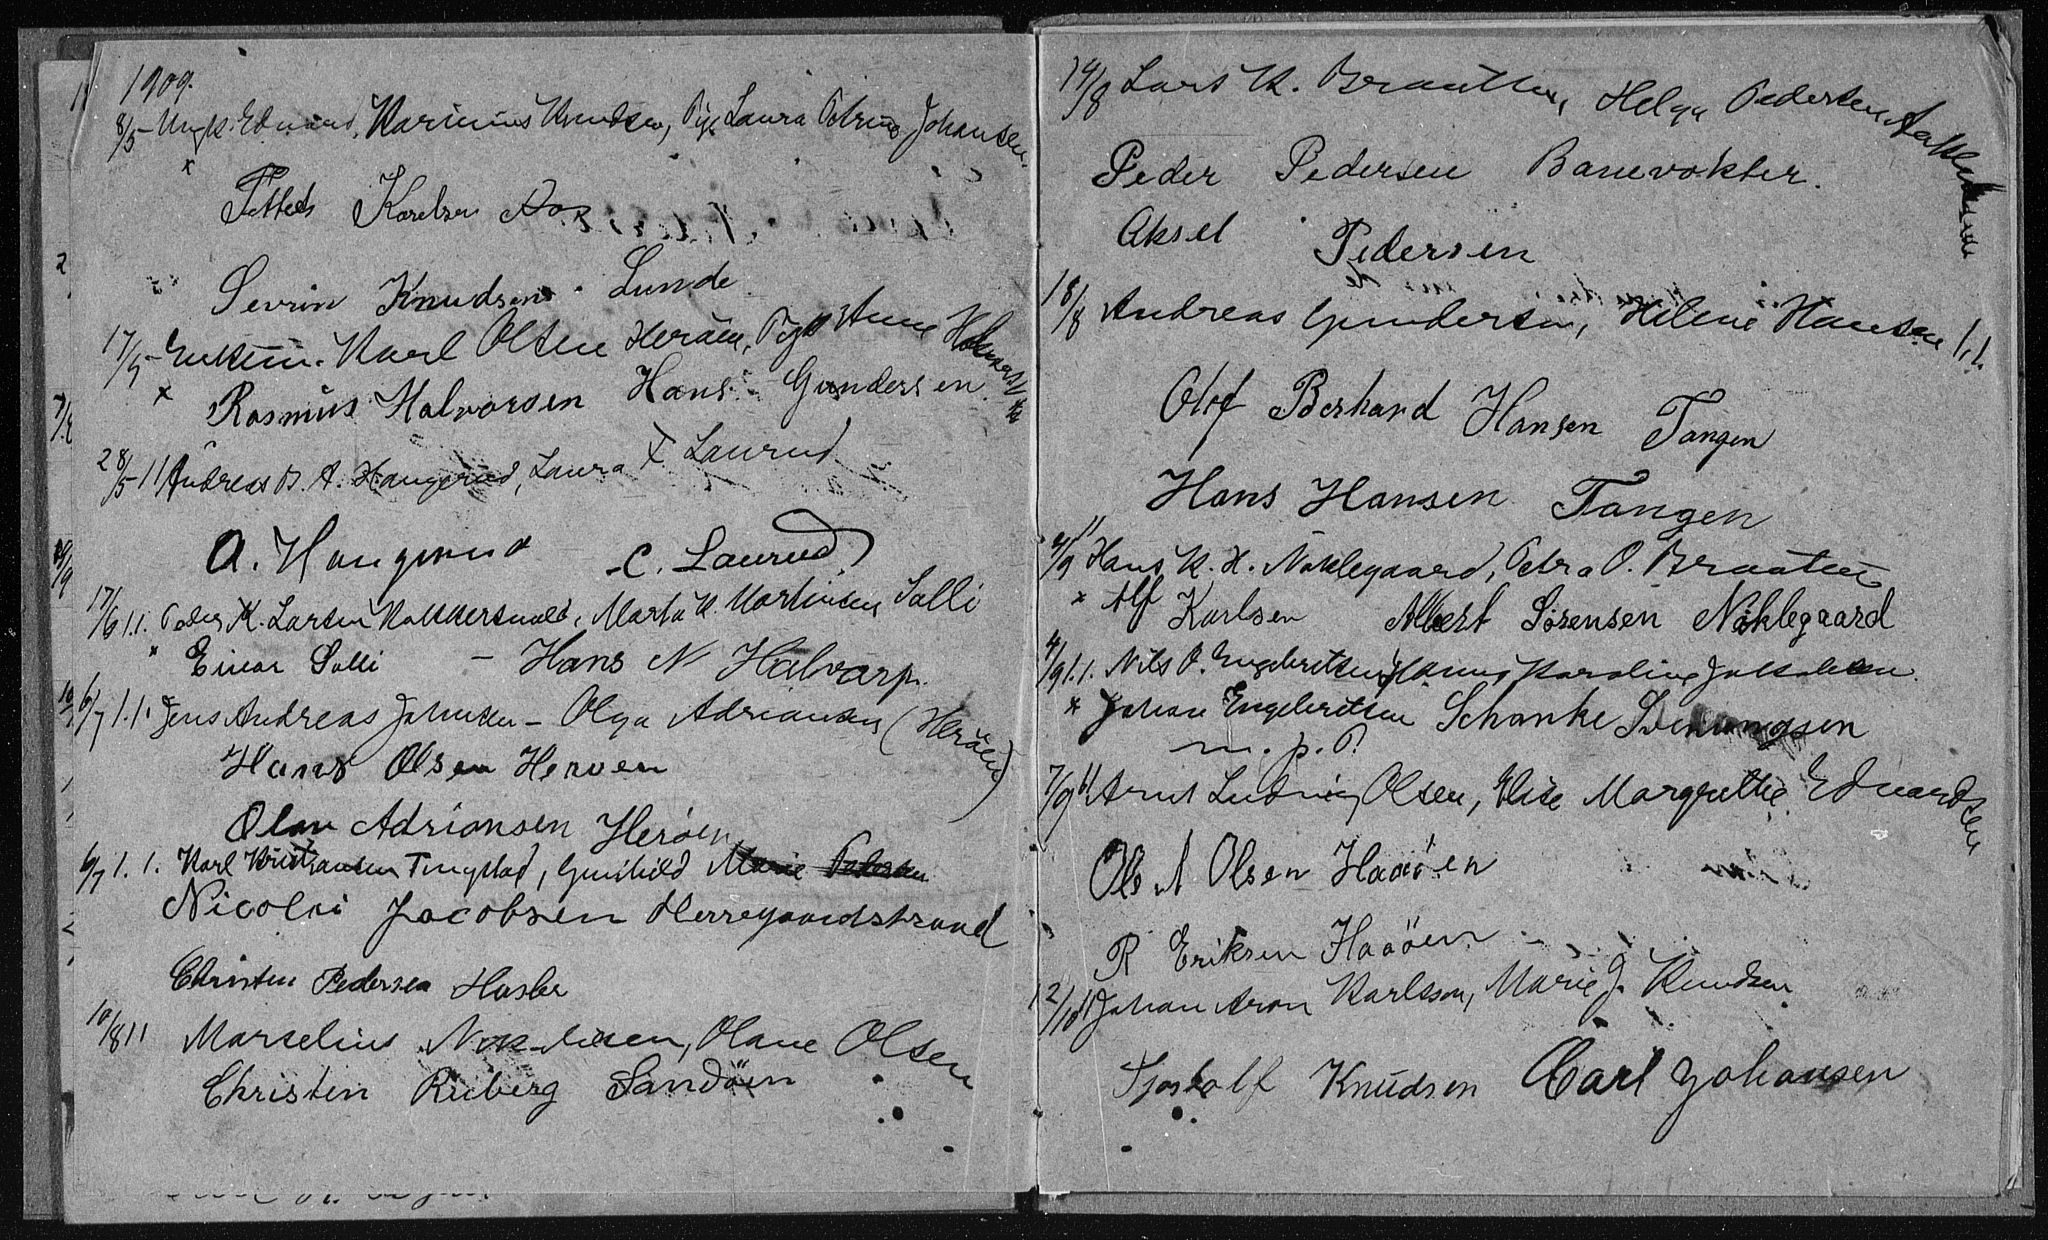 1909.
8/5 - Ungk. Edvard Marinius Knudsen, Pige Laura Petrine Johansen.
Karelsen
Sevrin Knudsen Lunde
17/5 - Enkem. Karl Olsen Heröen, Pige Anne
x Rasmus Halvorsen Hans Gundersen
28/5 11 Andreas B. A. Haugerud, Laura Laurud
A. Haugerud C. Laurud
17/6 1.1. Peder K. Larsen, Marta K. Mortinsen Solli
x Einar Solli - Hans N Halvorsn.
6/7 1.1. Jens Andreas Johnsen - Olga Adriansen (Heröen)
Hans Olsen Heroen
Olav Adriansen Herøen
6/7 1.1. Karl Kristiansen Tingstad, Gunhild Marie Pedersen
Nicolai Jacobsen Herregaardstrand
Christen Pedersen Hasle
10/8 11 Marselius, Olane Olsen
Christen Riiberg Sandöen
14/8 Lars K. Braathen, Helga Pedersen
Peder Pedersen Banevokter.
Aksel Pedersen
18/8 Andreas Gundersen, Helene Hansen 1.1.
Olof Bernhard Hansen Tangen
Hans Hansen Tangen
4/9 11 Hans K. H. Nøklegaard, Petra O. Braaten
x Alf Karlsen Albert Sørensen Nøklegaard
4/9 1.1. Nils O. Engebretsen, Hanna Karoline Jakobsen.
x Johan Engebretsen Schanke
m. p. P.
7/9 11 Arnt Ludvig Olsen, Elise Margrethe Edvardsen
Ole A Olsen Haaöen
R Eriksen Haaöen
12/10 Johan Aron Karlsson, Marie J. Knudsen
Knudsen Carl Johansen